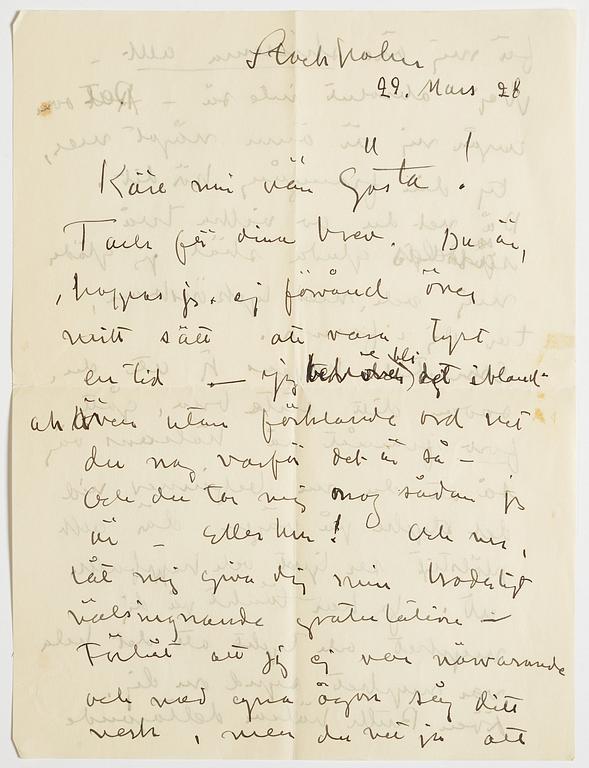 Stockholm
29. Mars 28
Käre min vän Gösta!
Tack för dina brev. Du är,
hoppas jag, ej förvånad över
mitt sätt att vara tyst
en tid — jag det ibland
även utan förklarande ord vet
du nog varför det är så —
och du tar mig nog sådan jag
är — Eller hur! Och nu,
låt mig giva dig min
välsignande gratulation —
Förlåt att jag ej var närvarande
och med egna ögon såg ditt
verk, men du vet ju att